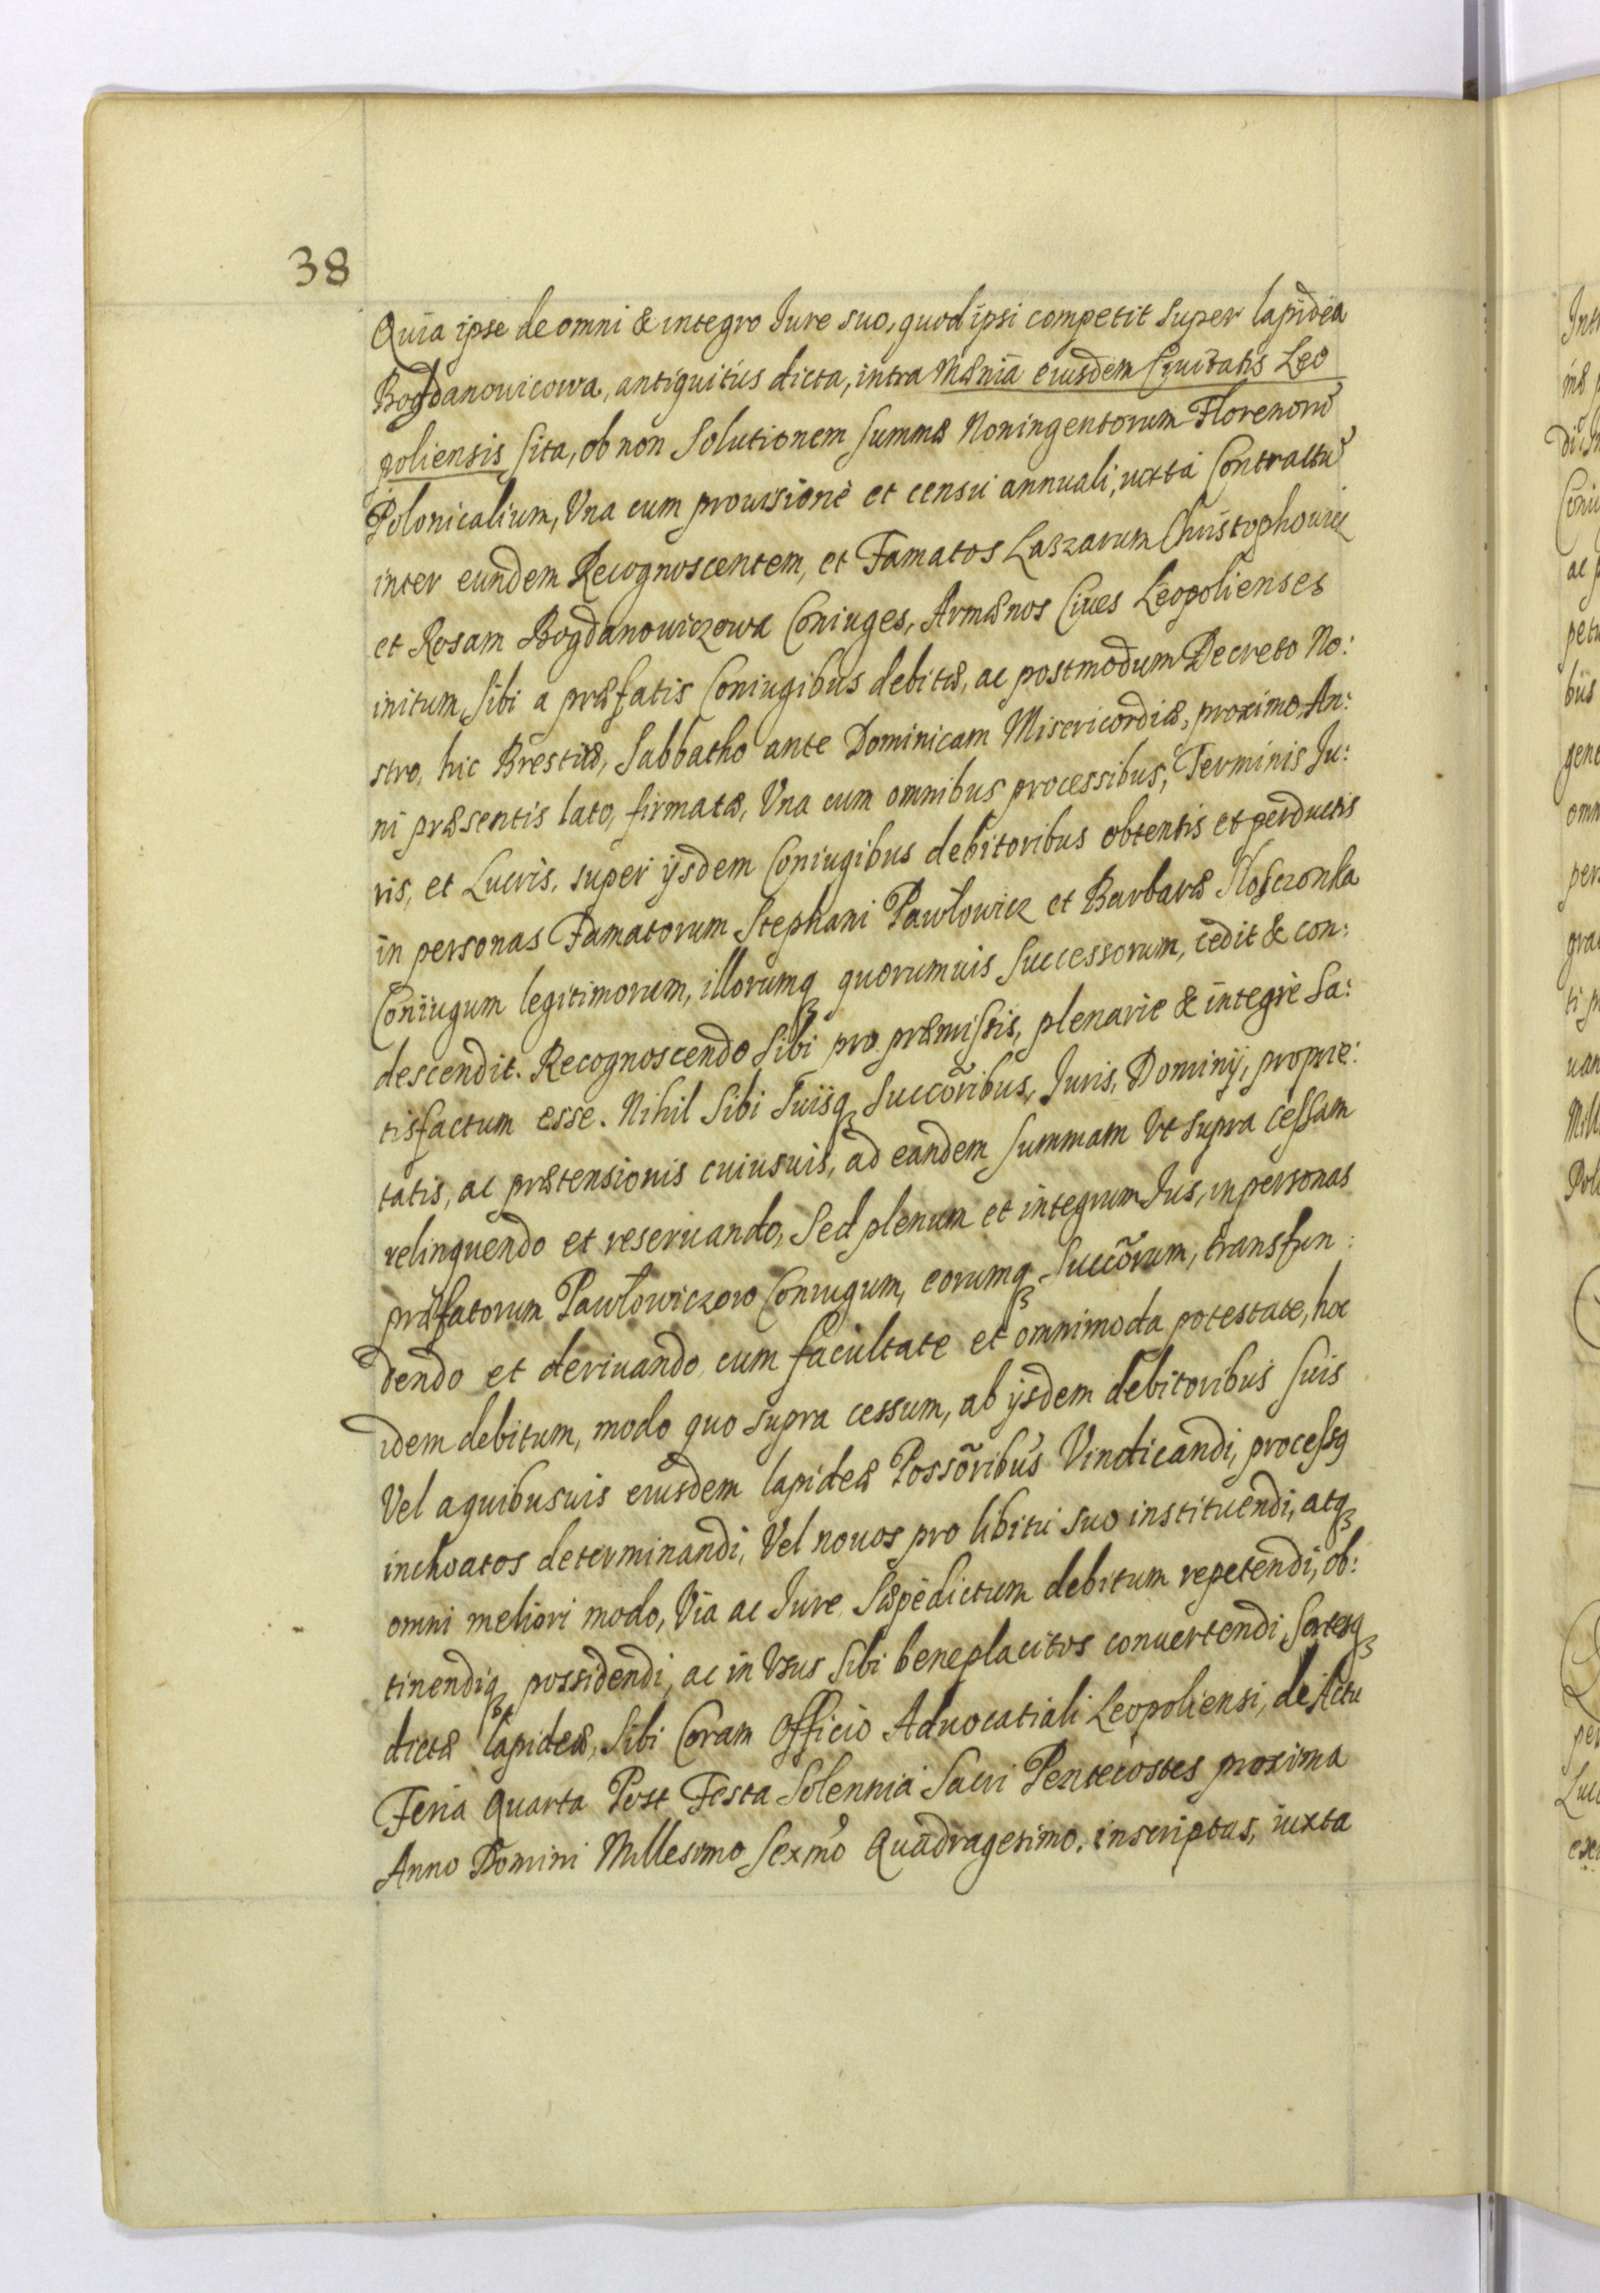 38
Quia ipse de omni & integro Iure suo, quod ipsi competit super lapidea
Bogdanouicowa, antiquitùs dicta, intra Mænia eiusdem Ciuitatis Leo
poliensis sita, ob non Solutionem summæ Noningentorum Florenorũ
Polonicalium, Vna cum prouisione et censu annuali, iuxta Contractũ
inter eundem Recognoscentem, et Famatos Laszarum Christophowicz
et Rosam Bogdanowiczowa Coniuges, Armænos Ciues Leopolienses
initum, sibi a præfatis Coniugibus debitæ, ac postmodum Decreto No:
stro, hic Brestiæ, Sabbatho ante Dominicam Misericordiæ, proximo An:
ni præsentis lato, firmatæ, Vna cum omnibus processibus, Terminis Ju:
ris, et Lucris, super ijsdem Coniugibus debitoribus obtentis et perductis
in personas Famatorum Stephani Pawłowicz et Barbaræ Hoſczonka
Coniugum legitimorum, illorumq3 quorumuis Successorum, cedit & con:
descendit. Recognoscendo Sibi pro præmissis, plenarie & integrè Sa:
tisfactum esse. Nihil Sibi Suisq3 Succõribus, Iuris, Dominij, proprie:
tatis, ac prætensionis cuiusuis, ad eandem Summam Vt supra cessam
relinquendo et reseruando, Sed plenum et integrum Ius, in personas
præfatorum Pawłowiczow Coniugum, eorumq3 Succõrum, transfun:
dendo et deriuando, cum facultate et omnimoda potestate, hoc
idem debitum, modo quo supra cessum, ab ijsdem debitoribus Suis
Vel a quibusuis eiusdem lapideæ Possõribus Vindicandi, processq
inchoatos determinandi, Vel nouos pro libitu suo instituendi, atq3
omni meliori modo, Via ac Iure Sæpedictum debitum repetendi, ob:
tinendiq3 possidendi, ac in Vsus Sibi beneplacitos conuertendi, Sortesq3
dictæ lapideæ, Sibi Coram Officio Aduocatiali Leopoliensi, de Actu
Feria Quarta Post Festa Solennia Sacri Pentecostes proxima
Anno Domini Millesimo Sexmõ Quadragesimo. inscriptas, iuxta